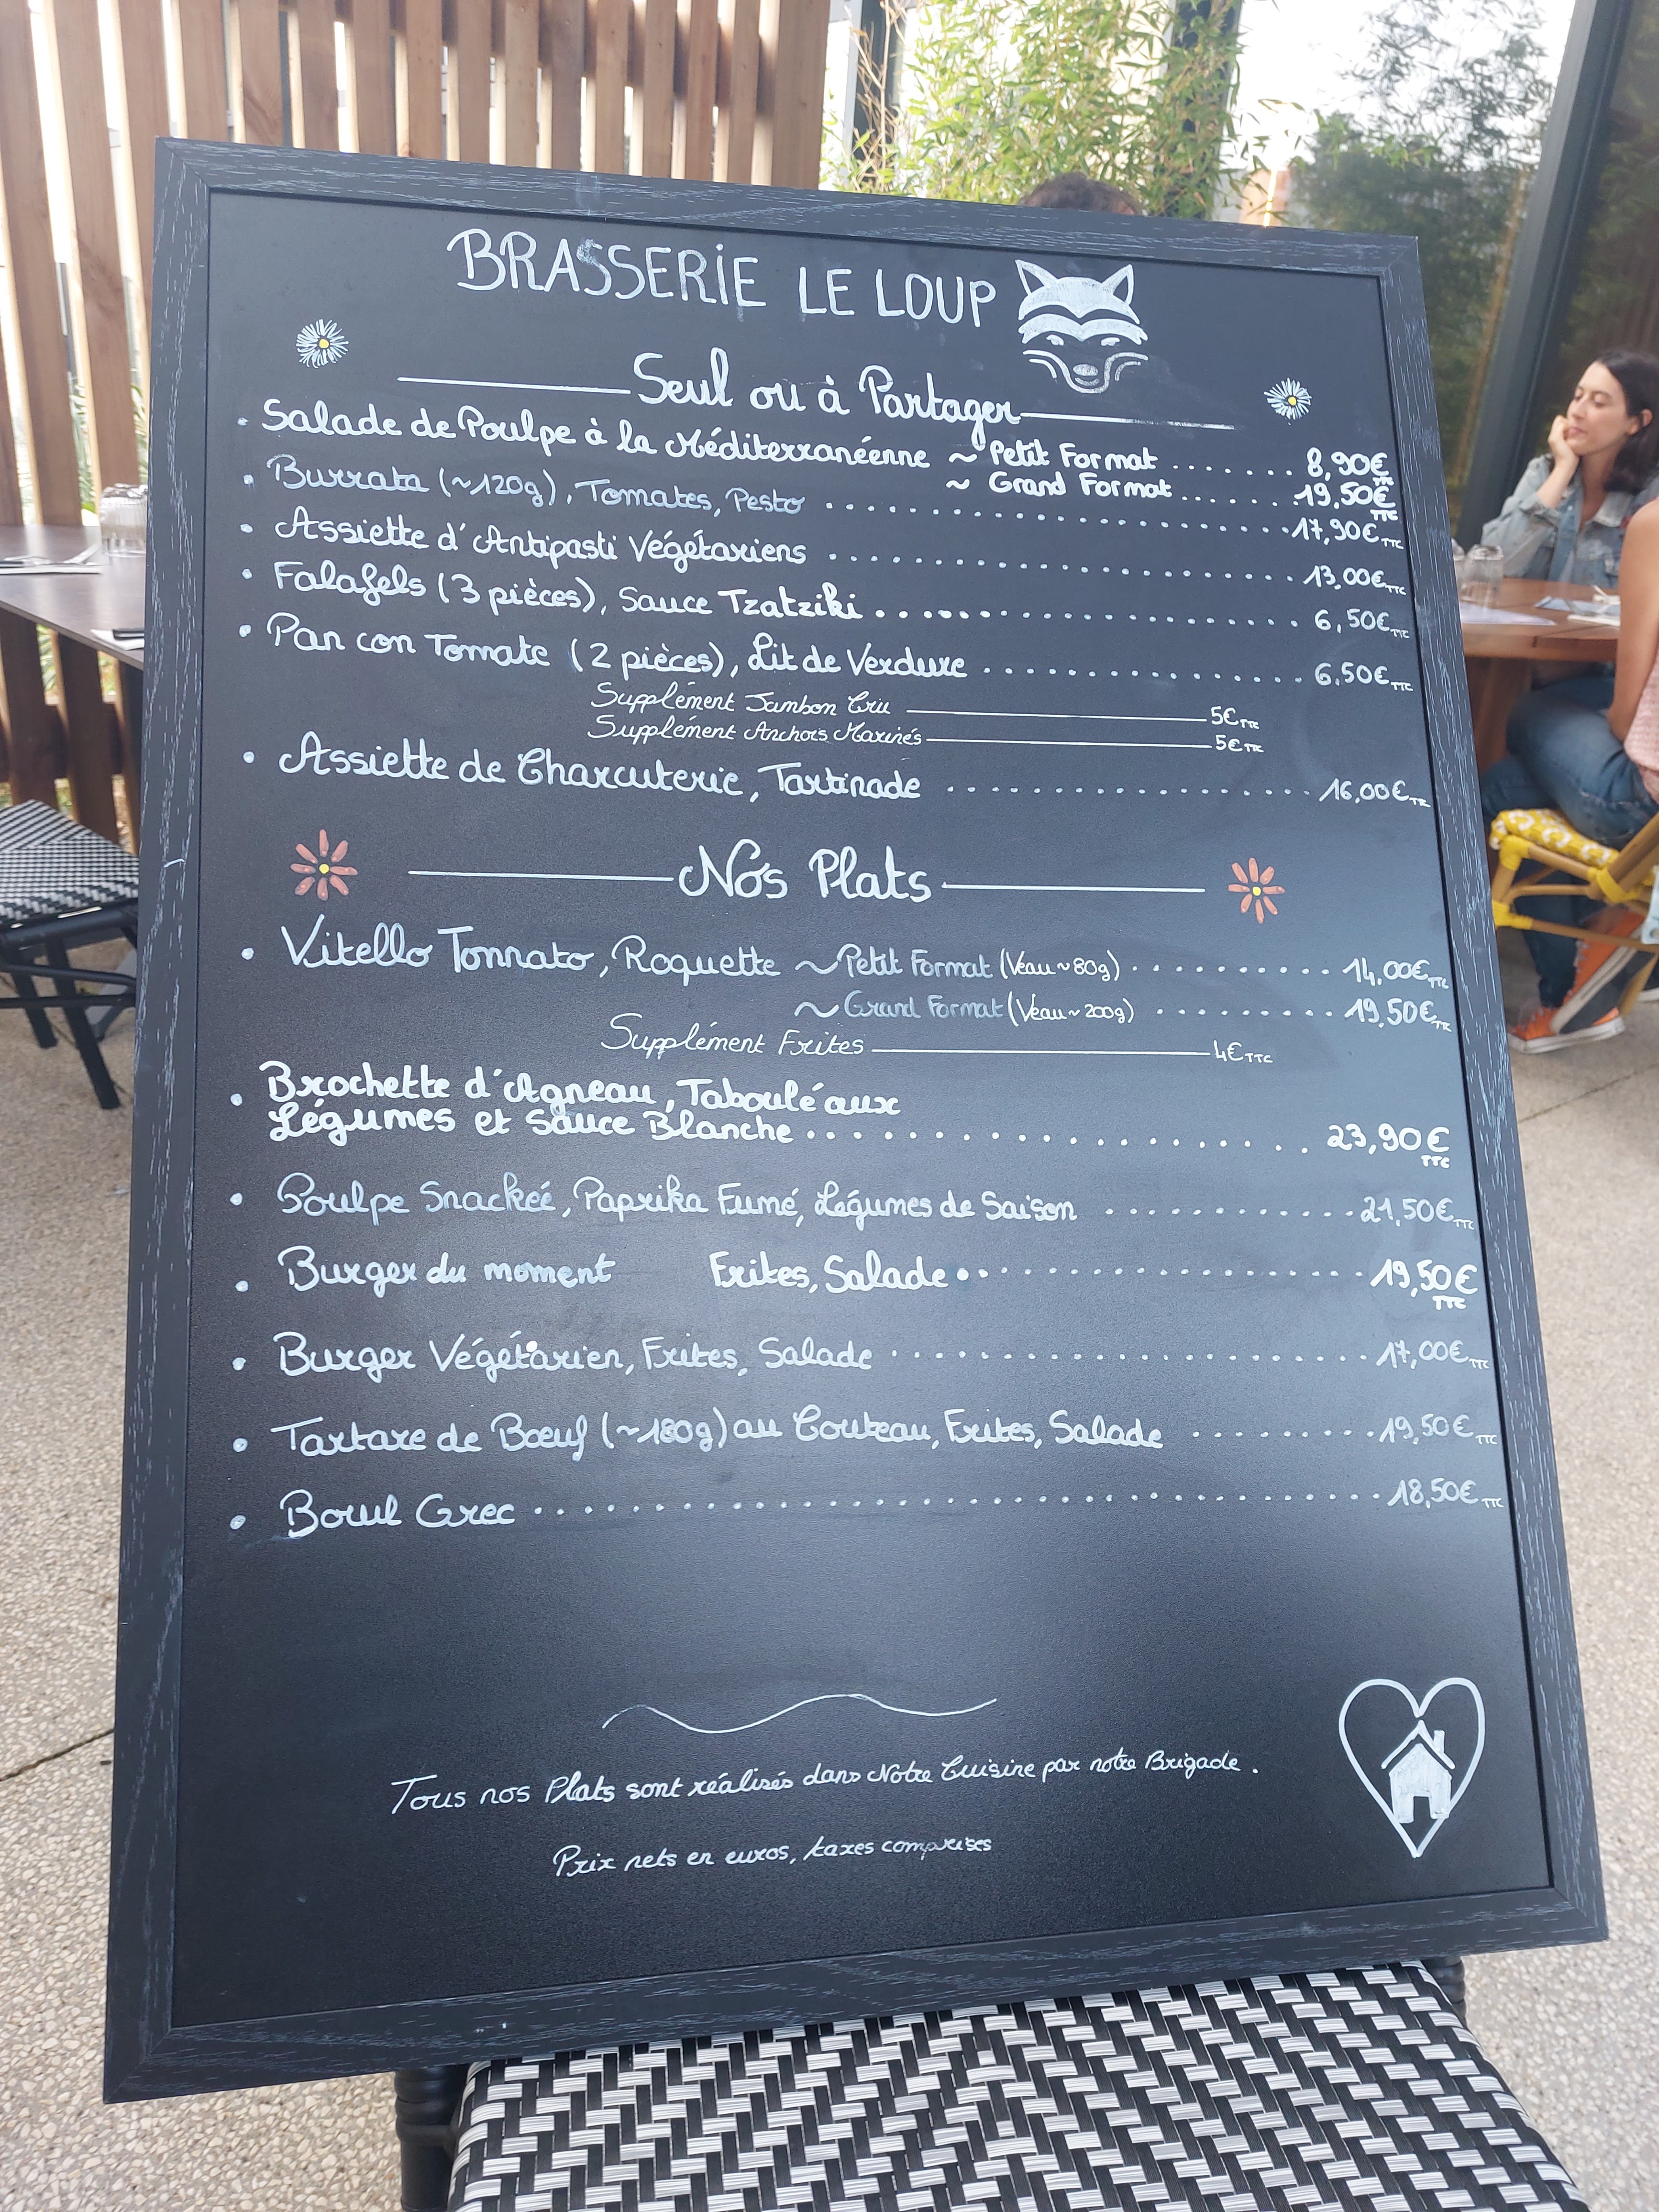 BRASSERIE LE LOUP
Seul ou à Partager
• Salade de Poulpe à la Méditerranéenne ~ Petit Format ....... 8,90€ TTC
~ Grand Format ...... 19,50€ TTC
• Burrata (~120g), Tomates, Pesto ........................ 17,90€ TTC
• Assiette d'Antipasti Végétariens ........................ 13,00€ TTC
• Falafels (3 pièces), Sauce Tzatziki ........................ 6,50€ TTC
• Pan con Tomate (2 pièces), Lit de Verdure .................. 6,50€ TTC
Supplément Jambon Cru ——— 5€ TTC
Supplément Anchois Marinés ——— 5€ TTC
• Assiette de Charcuterie, Tartinade .................. 16,00€ TTC
Nos Plats
• Vitello Tonnato, Roquette ~ Petit Format (Veau ~ 80g) ........... 14,00€ TTC
~ Grand Format (Veau ~ 200g) ......... 19,50€ TTC
Supplément Frites ——— 4€ TTC
• Brochette d'Agneau, Taboulé aux
Légumes et Sauce Blanche .................. 23,90€ TTC
• Poulpe Snackéé, Paprika Fumé, Légumes de Saison ............. 21,50€ TTC
• Burger du moment Frites, Salade .................... 19,50€ TTC
• Burger Végétarien, Frites, Salade ........................ 17,00€ TTC
• Tartare de Bœuf (~180g) au Couteau, Frites, Salade .......... 19,50€ TTC
• Bowl Grec .................................... 18,50€ TTC
Tous nos Plats sont réalisés dans Notre Cuisine par notre Brigade.
Prix nets en euros, taxes comprises